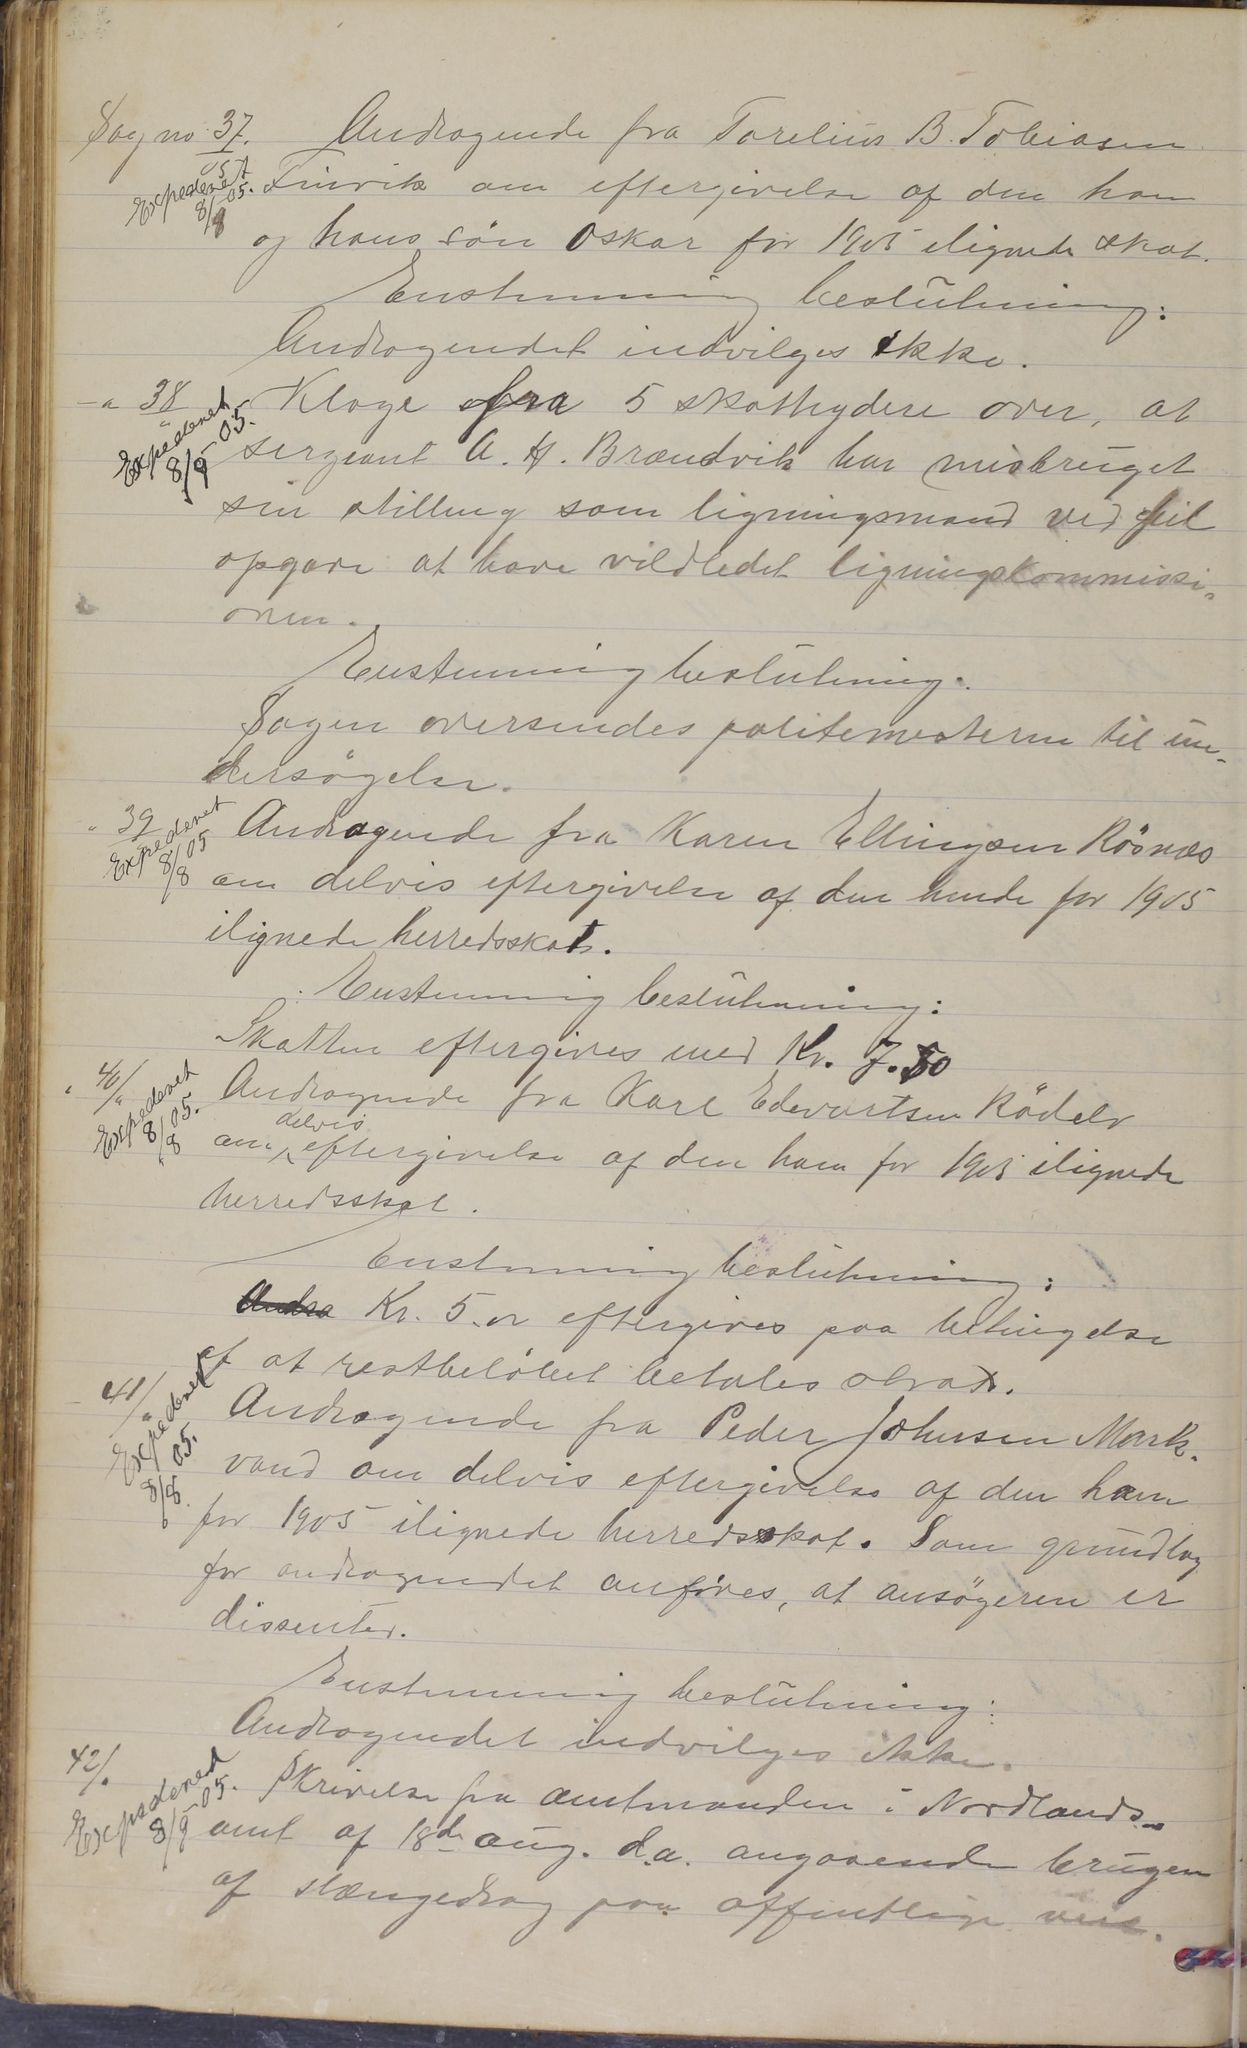 Sag no 37. Andragende fra Torelius B. Tobiasen
Expederet 8/8 05. Finvik om eftergivelse af den ham
og hans sön Oskar for 1905 ilignede skat.
Enstemmig beslutning:
Andragendet indvilges ikke.
-"- 38 Klage fra 5 skattydere over, at
Expederet 8/9 05. sergeant A. H. Brændvik har misbruget
sin stilling som ligningsmand ved feil
opgave at have vildledet ligningskommissi-
onen.
Enstemmig beslutning:
Sagen oversendes politimesteren til un-
dersögelse.
" 39 Andragende fra Karen Ellingsen Rösnes
Expederet 8/8 05 om delvis eftergivelse af den hende for 1905
ilignede herredsskat.
Enstemmig beslutning:
Skatten eftergives med Kr. 7.50
" 40/" Andragende fra Karl Edvartsen Rödelv
Expederet 8/8 05. om delvis eftergivelse af den ham for 1905 ilignede
herredsskat.
Enstemmig beslutning:
Andra Kr. 5.00 eftergives paa betingelse
af at restbelöbet betales strax.
- 41/" Andragende fra Peder Johnsen Mark-
Expederet 8/8 05. vand om delvis eftergivelse af den ham
for 1905 ilignede herredsskat. Som grundlag
for andragendet anföres, at ansögeren er
dissenter.
Enstemmig beslutning:
Andragendet indvilges ikke.
42/. Skrivelse fra amtmanden i Nordlands
Expederet 8/9 05. amt af 18de aug. d.a. angaaende brugen
af slængedrag paa offentlige veie.